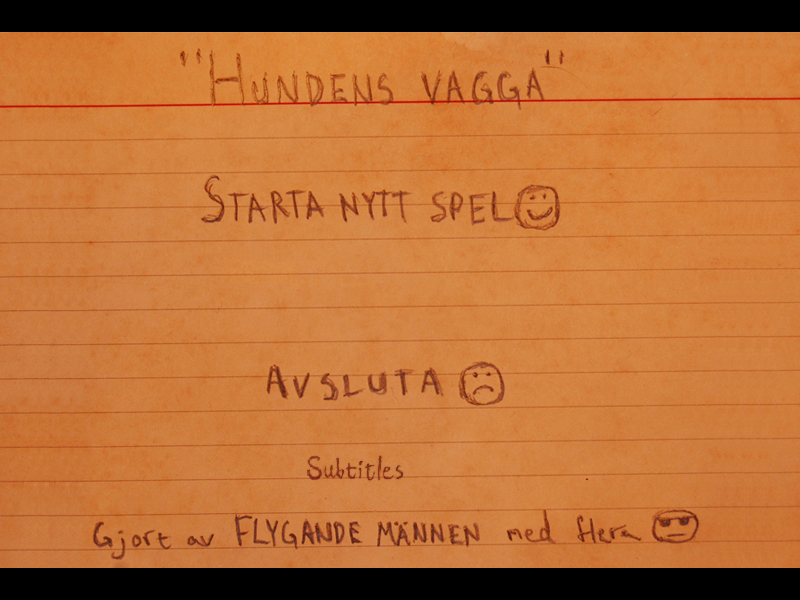 "HUNDENS VAGGA"
STARTA NYTT SPEL
AVSLUTA
Subtitles
Gjort av FLYGANDE MÄNNEN med flera